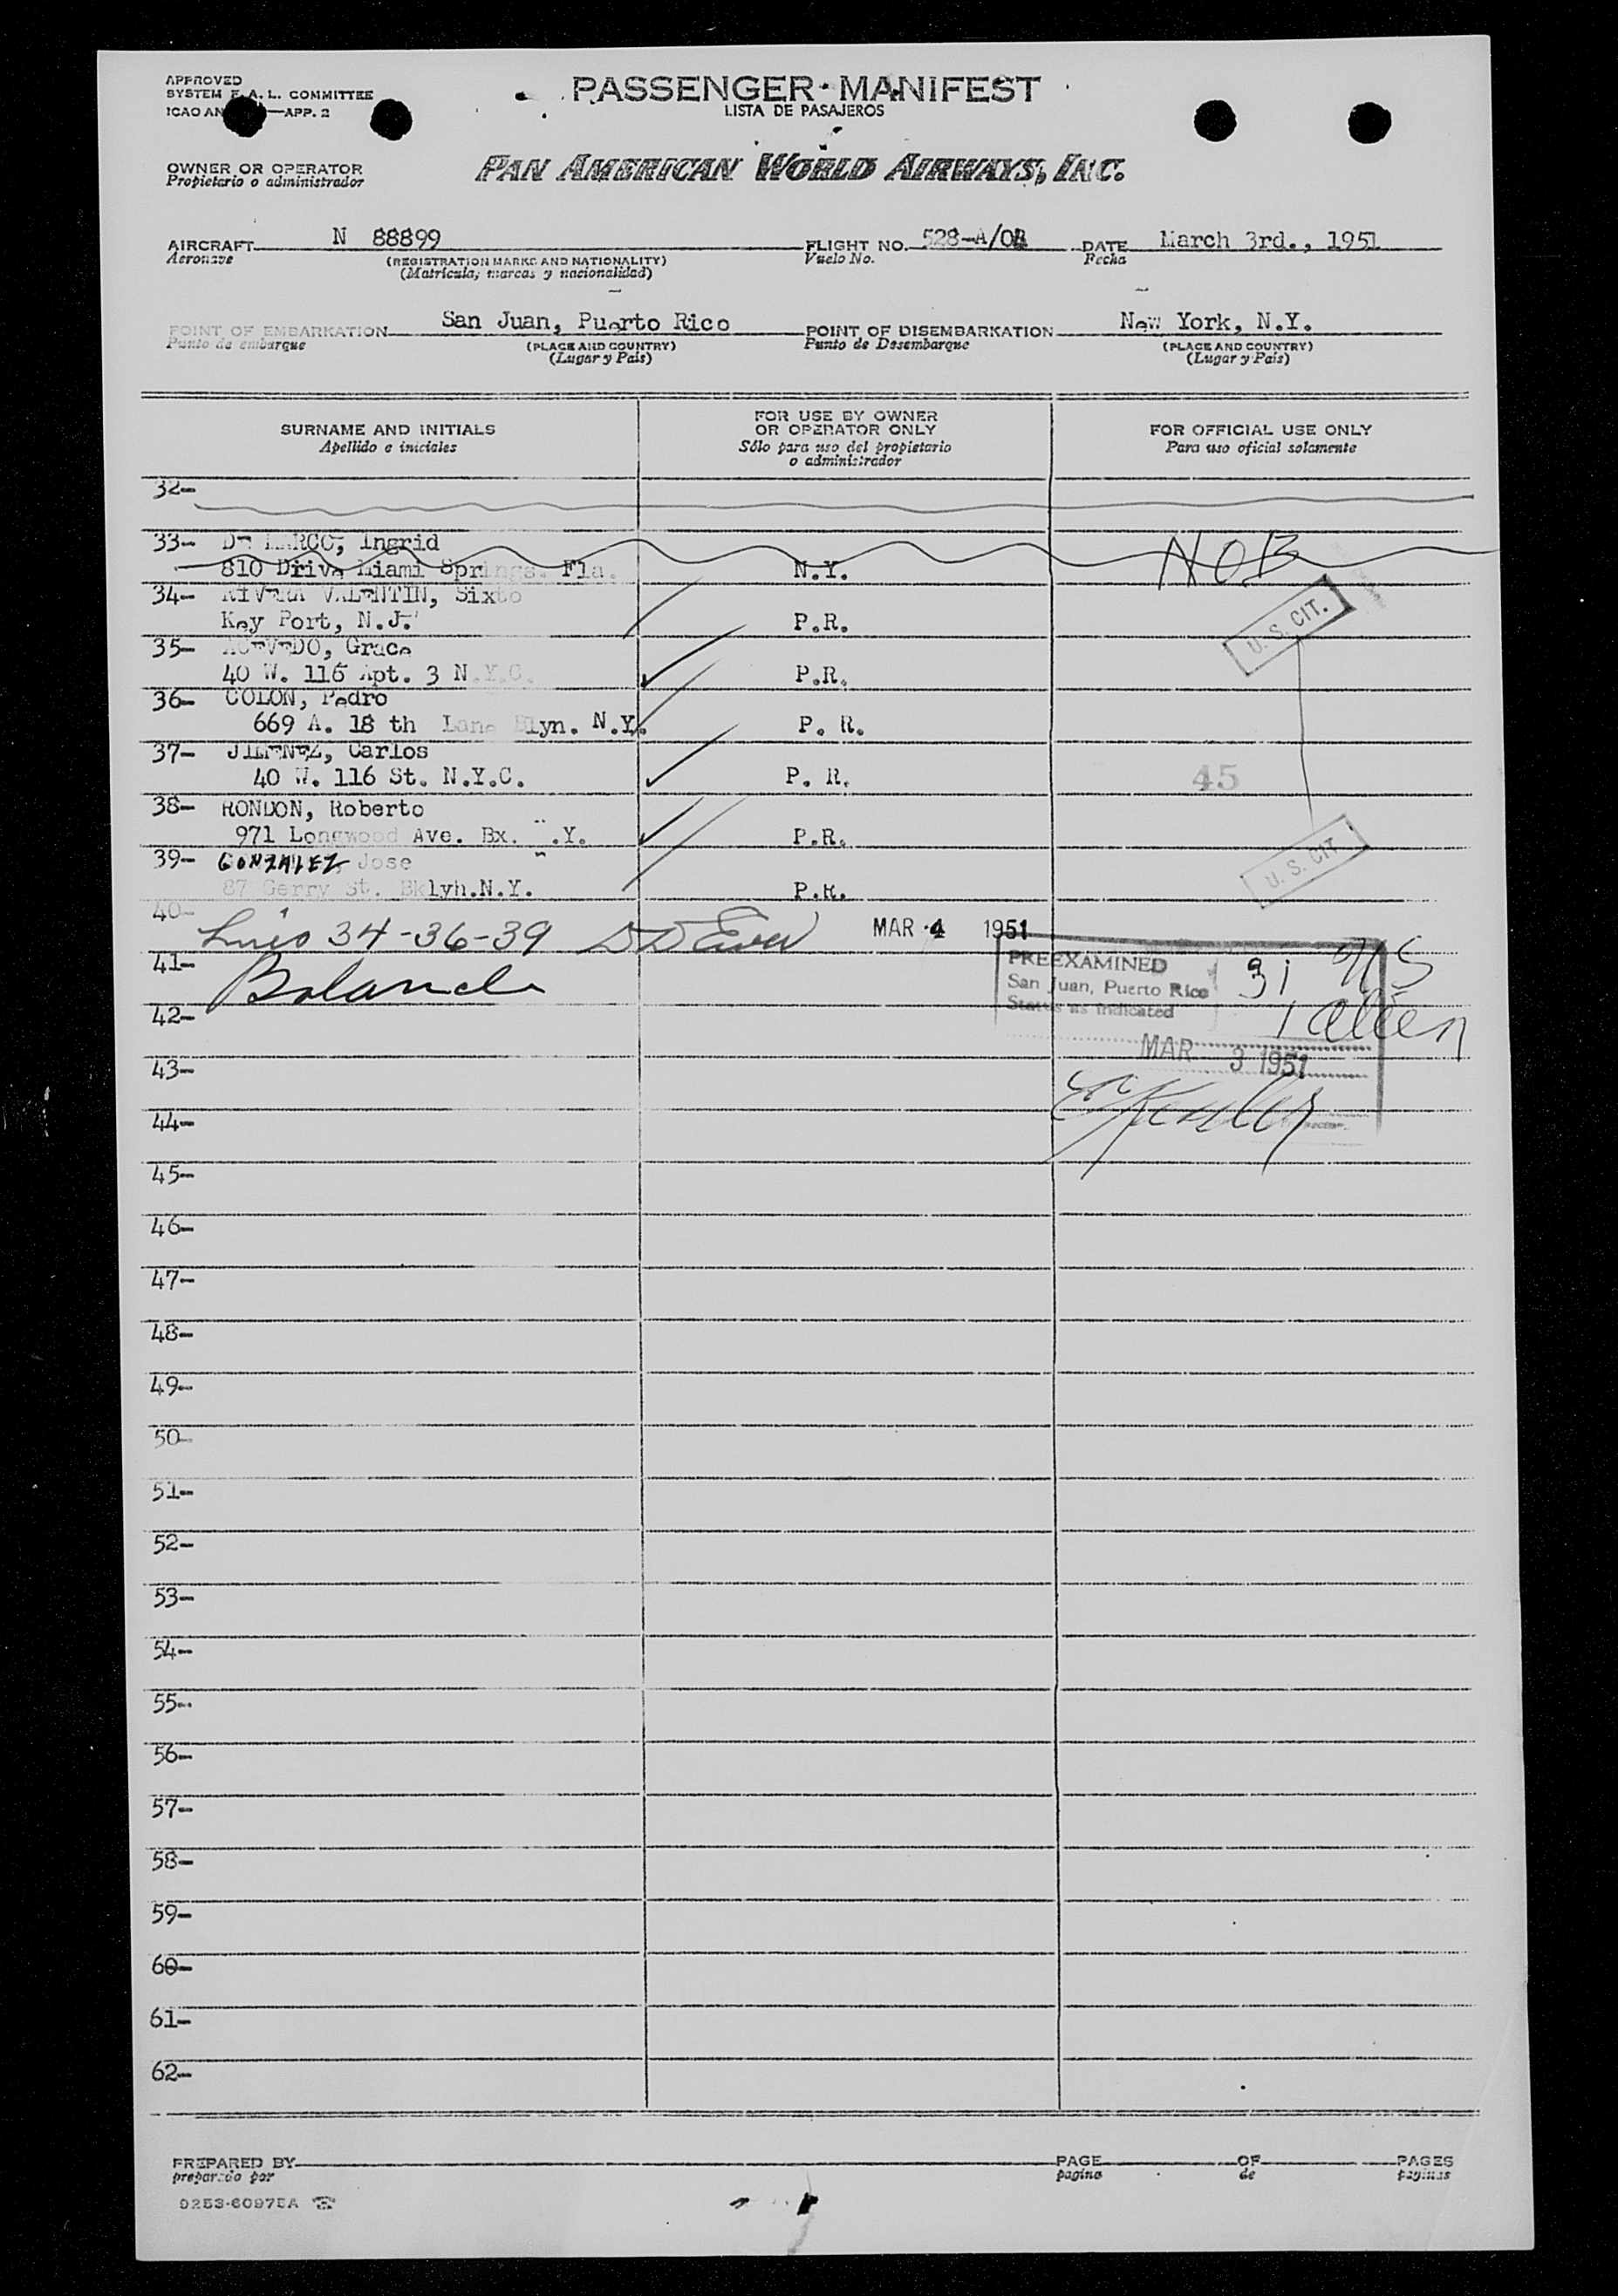 APPROVED
SYSTEM F.A.L. COMMITTEE
ICAO AN —APP. 2
PASSENGER MANIFEST
LISTA DE PASAJEROS
OWNER OR OPERATOR
Propietario o administrador
PAN AMERICAN WORLD AIRWAYS, INC.
AIRCRAFT N 88899 FLIGHT NO. 528-A/03 DATE March 3rd., 1951
Aeronave (REGISTRATION MARKS AND NATIONALITY) Vuelo No. Fecha
(Matricula, marcas y nacionalidad)
POINT OF EMBARKATION San Juan, Puerto Rico POINT OF DISEMBARKATION New York, N.Y.
Punto de embarque (PLACE AND COUNTRY) Punto de Desembarque (PLACE AND COUNTRY)
(Lugar y País) (Lugar y País)
SURNAME AND INITIALS FOR USE BY OWNER OR OPERATOR ONLY FOR OFFICIAL USE ONLY
Apellido e iniciales Sólo para uso del propietario o administrador Para uso oficial solamente
32-
33- De MARCO, Ingrid NOB
810 Drive Miami Springs. Fla. N.Y.
34- RIVERA VALENTIN, Sixto
Key Port, N.J. P.R. U. S. CIT.
35- ACEVEDO, Grace
40 W. 116 Apt. 3 N.Y.C. P.R.
36- COLON, Pedro
669 A. 18 th Lane Blyn. N.Y. P. R.
37- JIMENEZ, Carlos
40 W. 116 St. N.Y.C. P. R. 45
38- RONDON, Roberto
971 Longwood Ave. Bx. .Y. P.R.
39- GONZALEZ, Jose U. S. CIT
87 Gerry St. Bklyh.N.Y. P.R.
40-
34-36-39 MAR 4 1951
41- PREEXAMINED 31 US
San Juan, Puerto Rico
Status as indicated 1 alien
42-
MAR 3 1951
43-
44-
45-
46-
47-
48-
49-
50-
51-
52-
53-
54-
55-
56-
57-
58-
59-
60-
61-
62-
PREPARED BY PAGE OF PAGES
preparado por pagina de paginas
9253-60975A